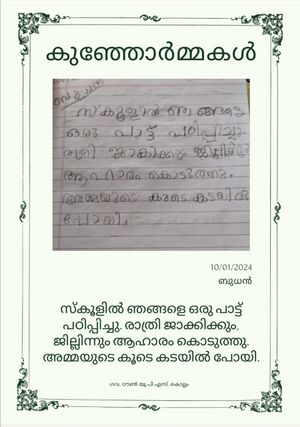 കുഞ്ഞോർമ്മകൾ
ബുധൻ
സ്കൂളിൽ ഞങ്ങളെ
ഒരു പാട്ട് പഠിപ്പിച്ചു.
രാത്രി ജാക്കിക്കും
കൊടുത്തു.
അമ്മയുടെ കൂടെ കടയിൽ
പോയി.
10/01/2024
ബുധൻ
സ്കൂളിൽ ഞങ്ങളെ ഒരു പാട്ട്
പഠിപ്പിച്ചു. രാത്രി ജാക്കിക്കും,
ജില്ലിന്നും ആഹാരം കൊടുത്തു.
അമ്മയുടെ കൂടെ കടയിൽ പോയി.
ഗവ. ടൗൺ യു.പി.എസ്. കൊല്ലം